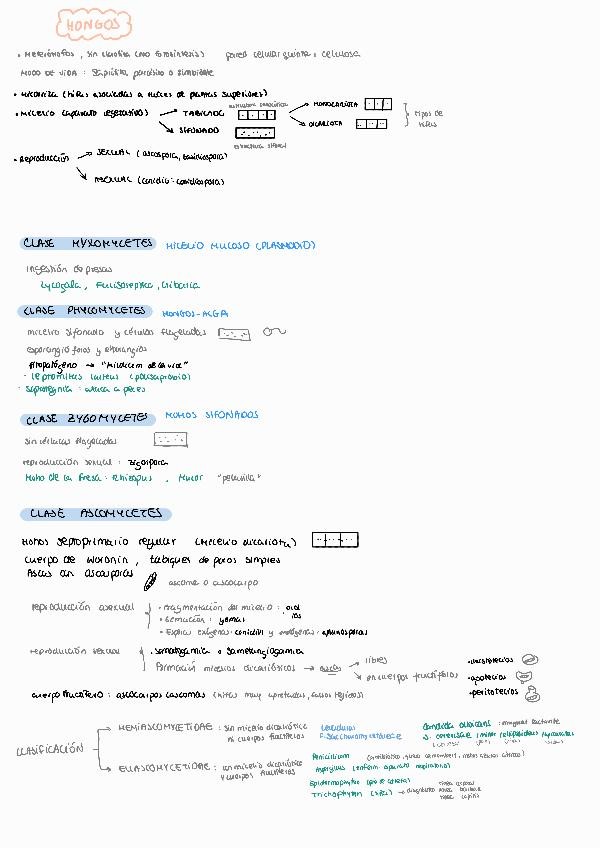 HONGOS
• Heterótrofos, sin clorofila (no fotosíntesis) pared celular quitina o celulosa
MODO DE VIDA: Saprófita, parásito o simbionte
• MICORRIZA (hifas asociadas a raíces de plantas superiores)
• MICELIO (aparato vegetativo) → TABICADO → MONOCARIOTA
→ DICARIOTA
tipos de hifas
→ SIFONADO
estructura sifonal
• REPRODUCCIÓN → SEXUAL (ascospora, basidiospora)
→ ASEXUAL (conidio: conidiosporas)
CLASE MYXOMYCETES MICELIO MUCOSO (PLASMODIO)
Ingestión de presas
Lycogala, Fuligoseptica, Cribaria
CLASE PHYCOMYCETES HONGOS-ALGA
micelio sifonado y células flageladas
esporangióforos y esporangios
fitopatógeno → "Mildium de la vid"
• Leptomitus lacteus
• Saprolegnia: ataca a peces
CLASE ZYGOMYCETES MOHOS SIFONADOS
sin células flageladas
reproducción sexual: zigospora
Moho de la fresa: Rhizopus, Mucor "pelusilla"
CLASE ASCOMYCETES
Mohos septoprimario regular (Micelio dicariota)
Cuerpo de Woronin, tabiques de poros simples
Ascas con ascosporas
ascoma o ascocarpo
reproducción asexual
• Fragmentación del micelio:
• Gemación: yemas
• Esporas exógenas: conidios y endógenas:
reproducción sexual
• somatogamia o gametangiogamia
formación micelios dicarióticos → ascas → libres
→ en cuerpos fructíferos
• cleistotecios
• apotecios
• peritecios
cuerpo fructífero: ascocarpos ascomas (hifas muy apretadas, falsos tejidos)
CLASIFICACIÓN
HEMIASCOMYCETIDAE: sin micelio dicariótico ni cuerpos fructíferos
Levaduras
Candida albicans:
S. cerevisiae
EUASCOMYCETIDAE: con micelio dicariótico y cuerpos fructíferos
Penicillium
Aspergillus (enferm. aparato respiratorio)
Epidermophyton (pie de atleta)
Trichophyton